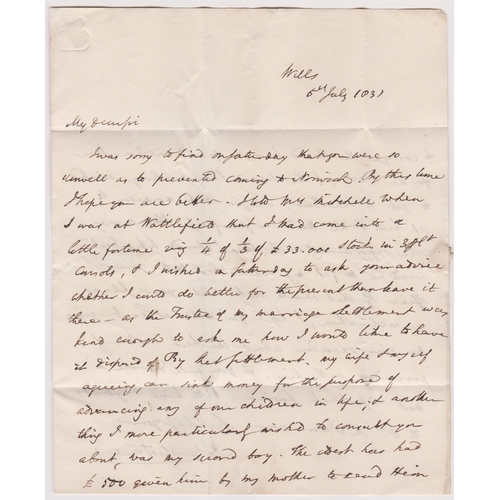 Wells
6th July 1831
My dear Sir
I was sorry to find on Saturday that you were so
unwell as to prevented coming to Norwich. By this time
I hope you are better. I told Mrs Mitchell when
I was at Wattlefield that I had come into a
little fortune viz 1/4 of 1/3 of £33.000 Stock in 3 pCt
Consols, & I wished on Saturday to ask your advice
whether I could do better for the present than leave it
there – as the Trustee of my marriage Settlement was
kind enough to ask me how I would like to have
it disposed of By that Settlement, my wife & myself
agreeing, can sink money for the purpose of
advancing any of our children in life, & another
thing I more particularly wished to consult you
about, was my second boy. The eldest has had
£500 given him by my mother to send him